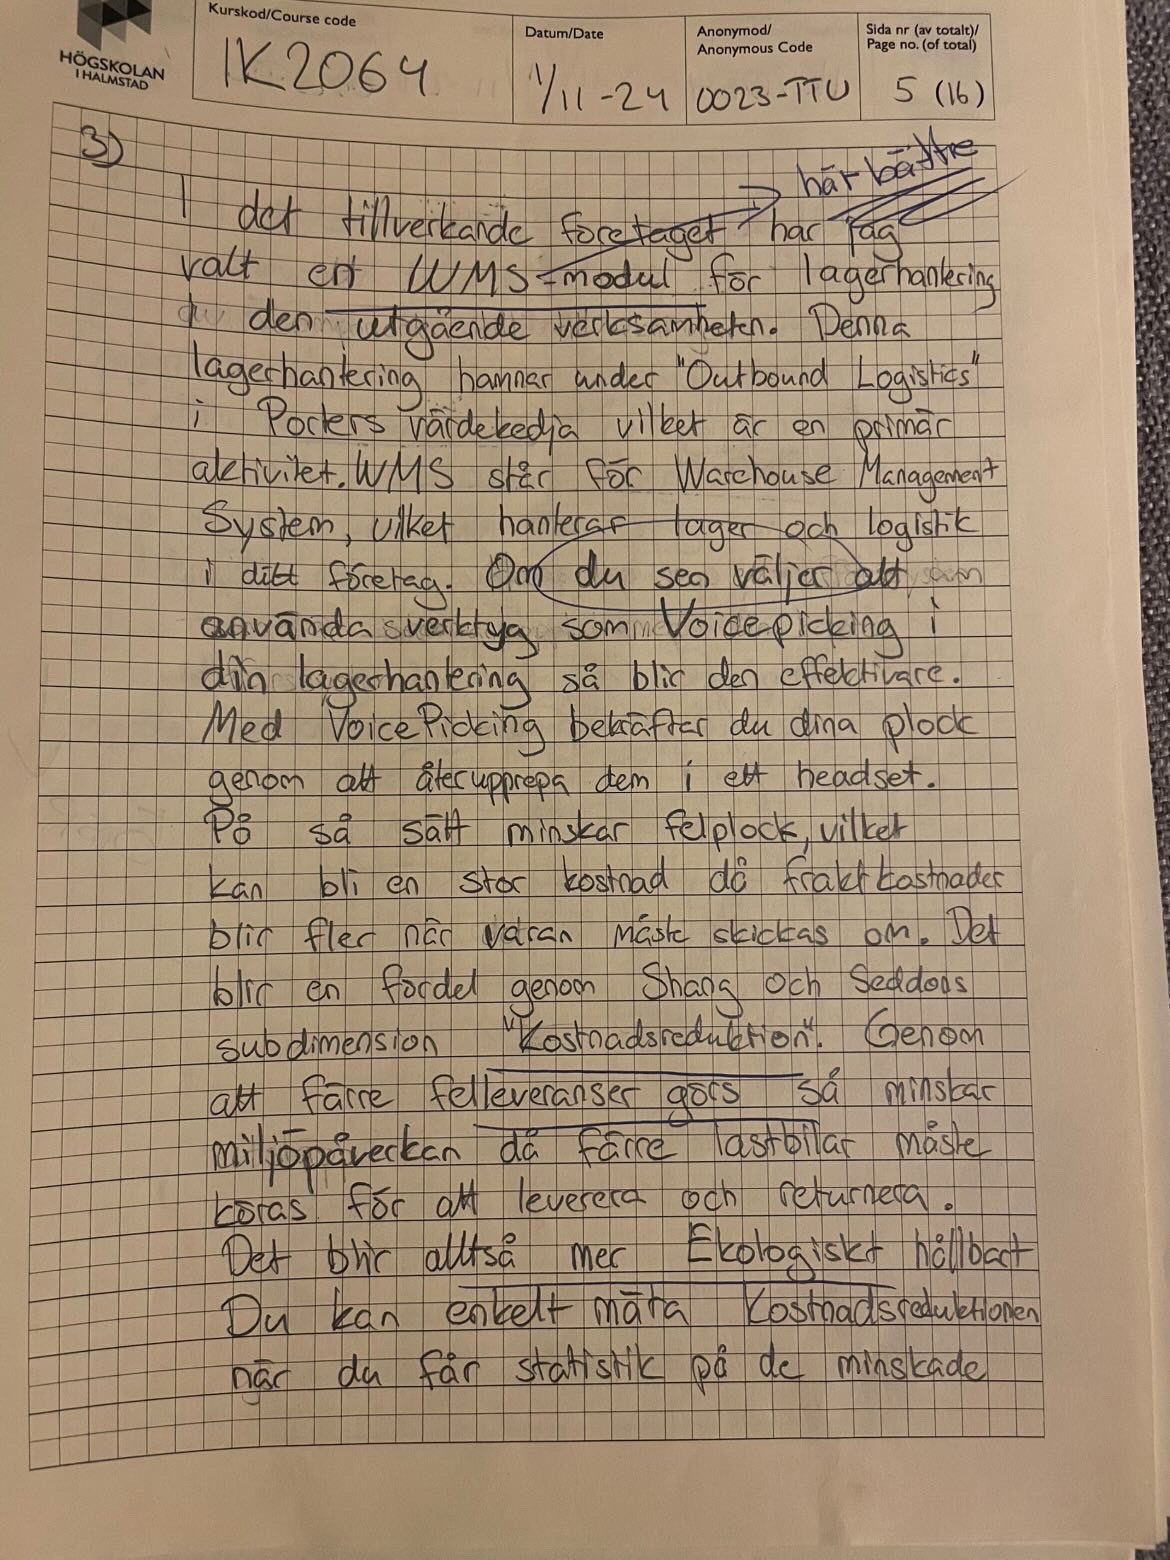 HÖGSKOLAN
I HALMSTAD
Kurskod/Course code
IK2064
Datum/Date
1/11-24
Anonymod/
Anonymous Code
0023-TTU
Sida nr (av totalt)/
Page no. (of total)
5 (16)
3)
här bättre
I det tillverkande företaget har jag
valt en WMS-modul för lagerhantering
den utgående verksamheten. Denna
lagerhantering hamnar under "Outbound Logistics"
i Porters värdekedja vilket är en primär
aktivitet. WMS står för Warehouse Management
System, vilket hanterar lager och logistik
i ditt företag. Om du sen väljer att
använda verktyg som Voicepicking i
din lagerhantering så blir den effektivare.
Med VoicePicking bekräftar du dina plock
genom att återupprepa dem i ett headset.
På så sätt minskar felplock, vilket
kan bli en stor kostnad då fraktkostnader
blir fler när varan måste skickas om. Det
blir en fördel genom Shang och Seddons
subdimension "Kostnadsreduktion". Genom
att färre felleveranser görs så minskar
miljöpåverkan då färre lastbilar måste
köras för att leverera och returnera.
Det blir alltså mer Ekologiskt hållbart
Du kan enkelt mäta kostnadsreduktionen
när du får statistik på de minskade